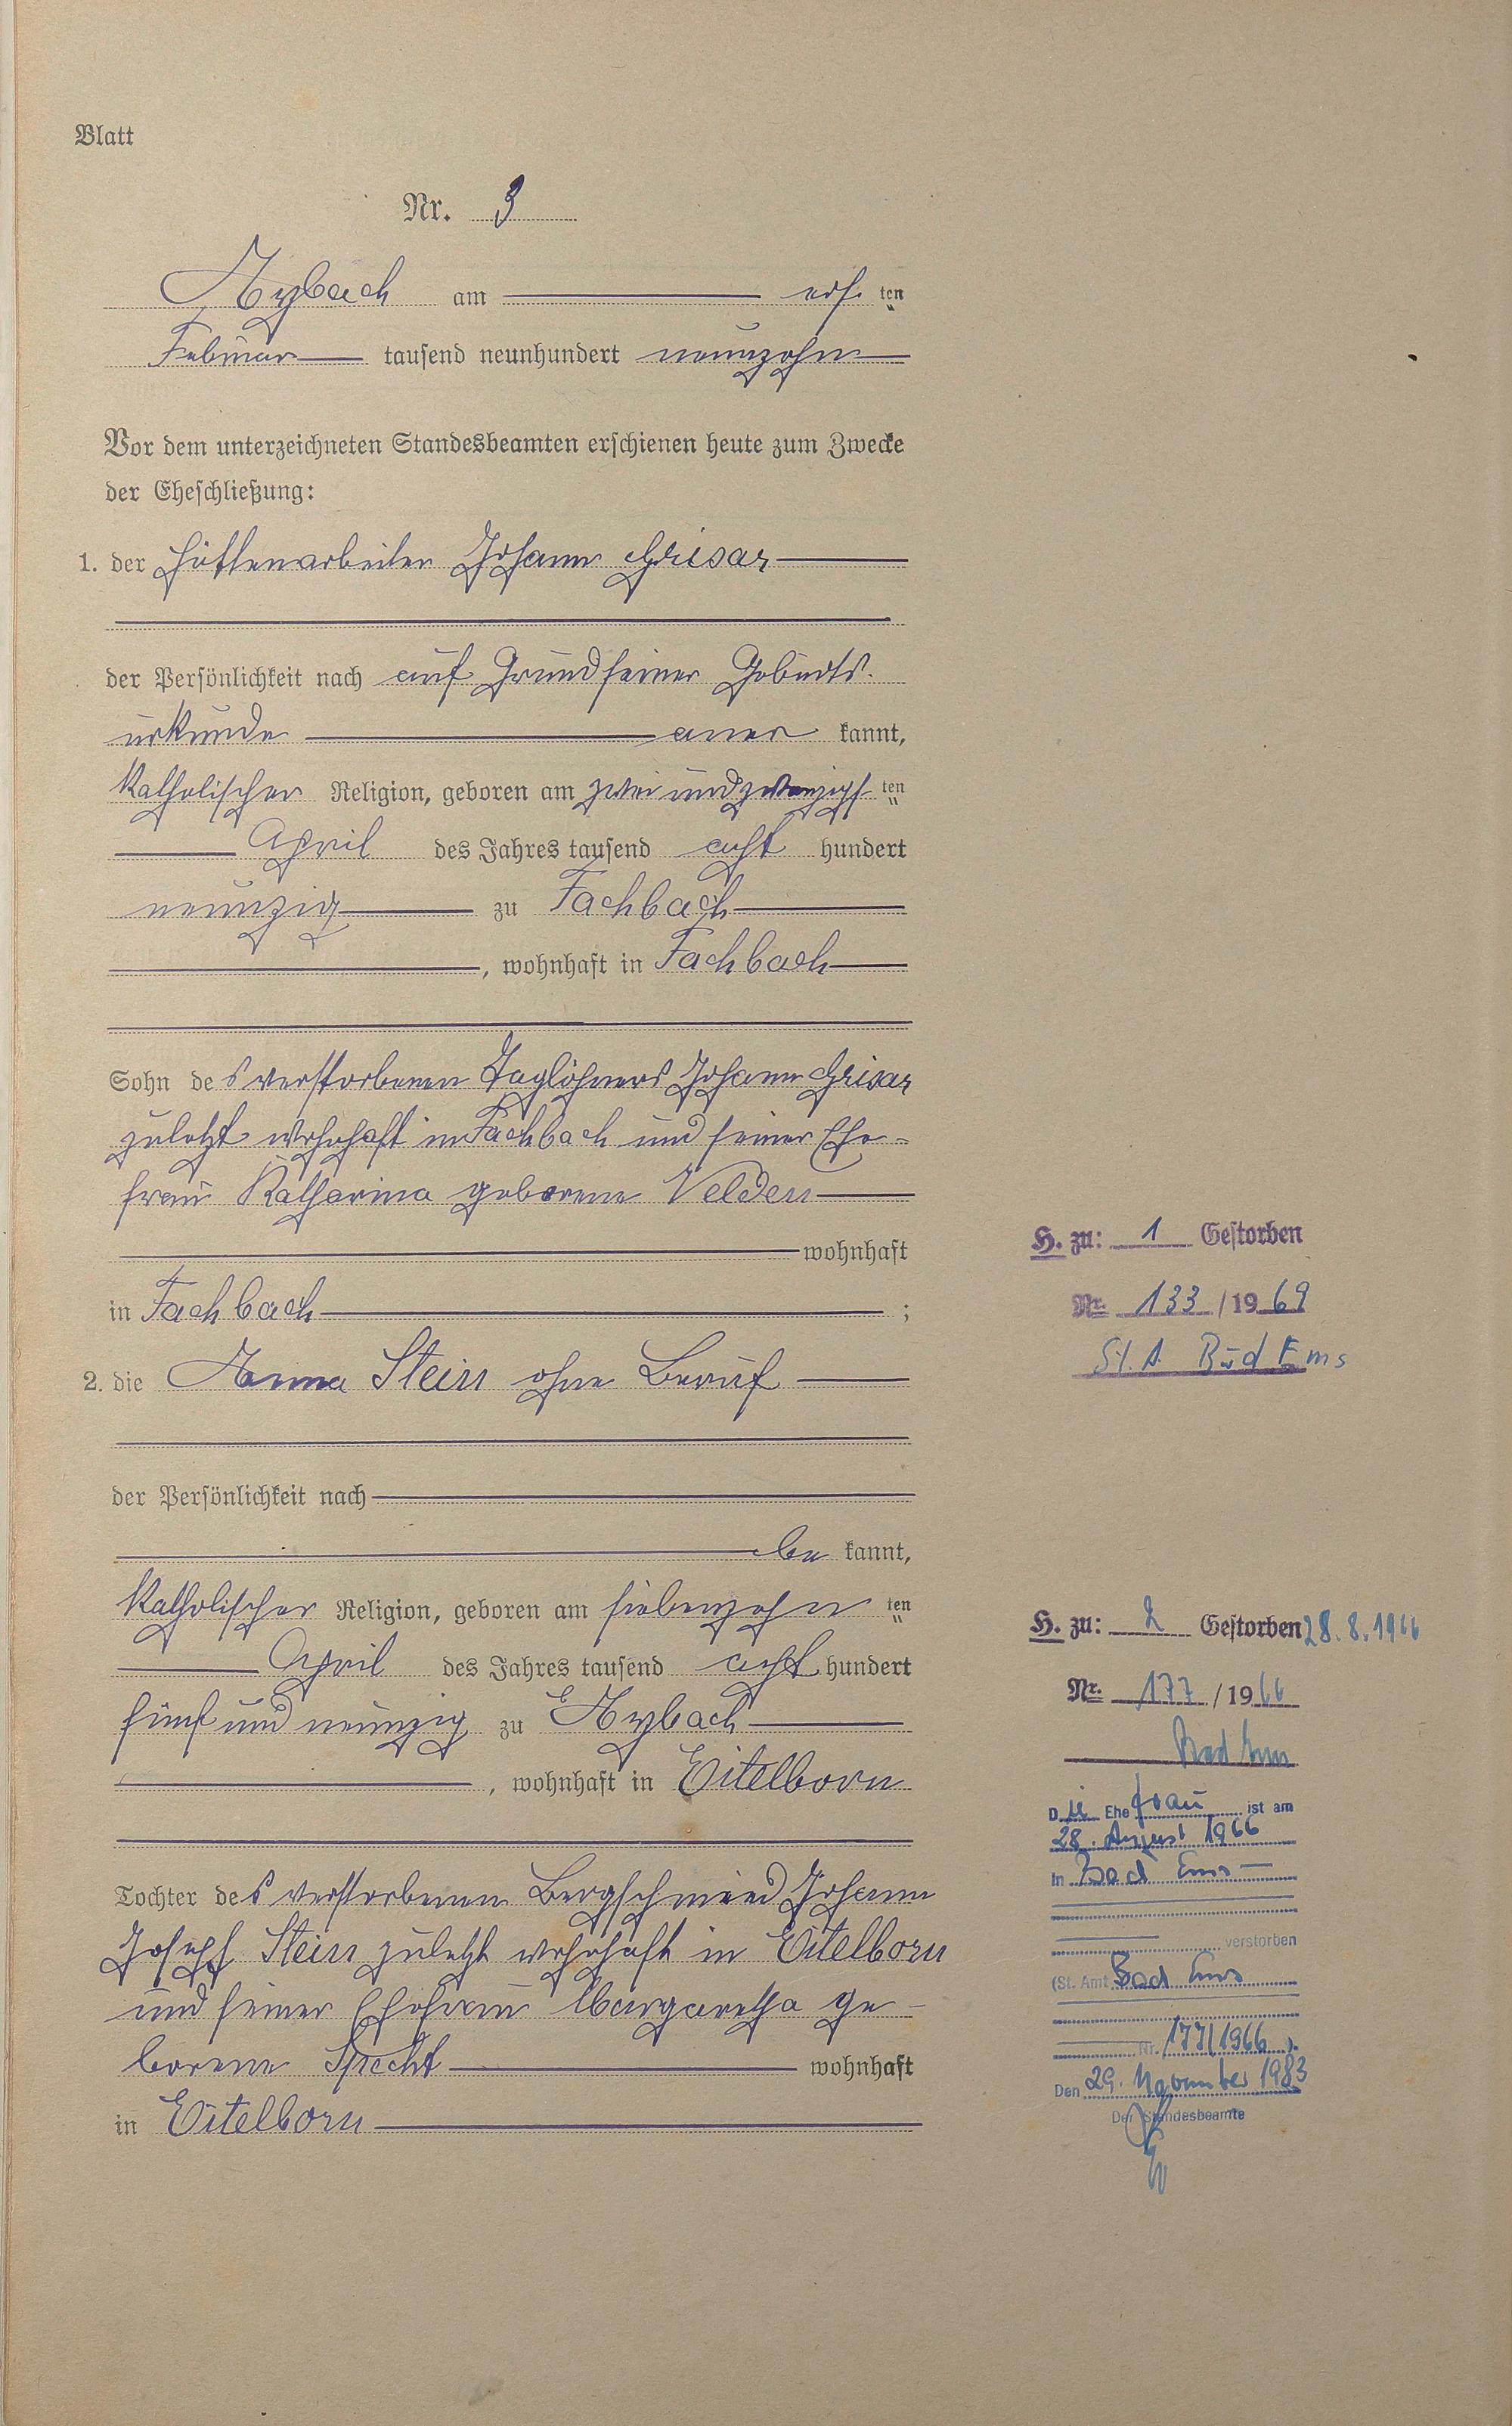 Blatt
Nr. 3
Arzbach am erst ten
Februar tausend neunhundert neunzehn
Vor dem unterzeichneten Standesbeamten erschienen heute zum Zwecke
der Eheschließung:
1. der Hüttenarbeiter Johann Grisar
der Persönlichkeit nach auf Grund seiner Geburts-
urkunde aner kannt,
katholischer Religion, geboren am zwei und zwanzigst ten
April des Jahres tausend acht hundert
neunzig zu Fachbach
, wohnhaft in Fachbach
Sohn des verstorbenen Taglöhners Johann Grisar
zuletzt wohnhaft in Fachbach und seiner Ehe-
frau Katharina geborene Velden
wohnhaft
in Fachbach ;
2. die Anna Stein ohne Beruf
der Persönlichkeit nach
be kannt,
katholischer Religion, geboren am siebenzehn ten
April des Jahres tausend acht hundert
fünf und neunzig zu Arzbach
, wohnhaft in Eitelborn
Tochter des verstorbenen Bergschmied Johann
Joseph Stein zuletzt wohnhaft in Eitelborn
und seiner Ehefrau Margaretha ge-
borene Specht wohnhaft
in Eitelborn
H. zu: 1 Gestorben
Nr. 133 / 1969
St. A. Bad Ems
H. zu: 2 Gestorben 28.8.1966
Nr. 177 / 1966
Bad Ems
Die Ehefrau ist am
28. August 1966
in Bad Ems
verstorben
(St. Amt Bad Ems
Nr. 177/1966 ).
Den 29. November 1983
Der Standesbeamte